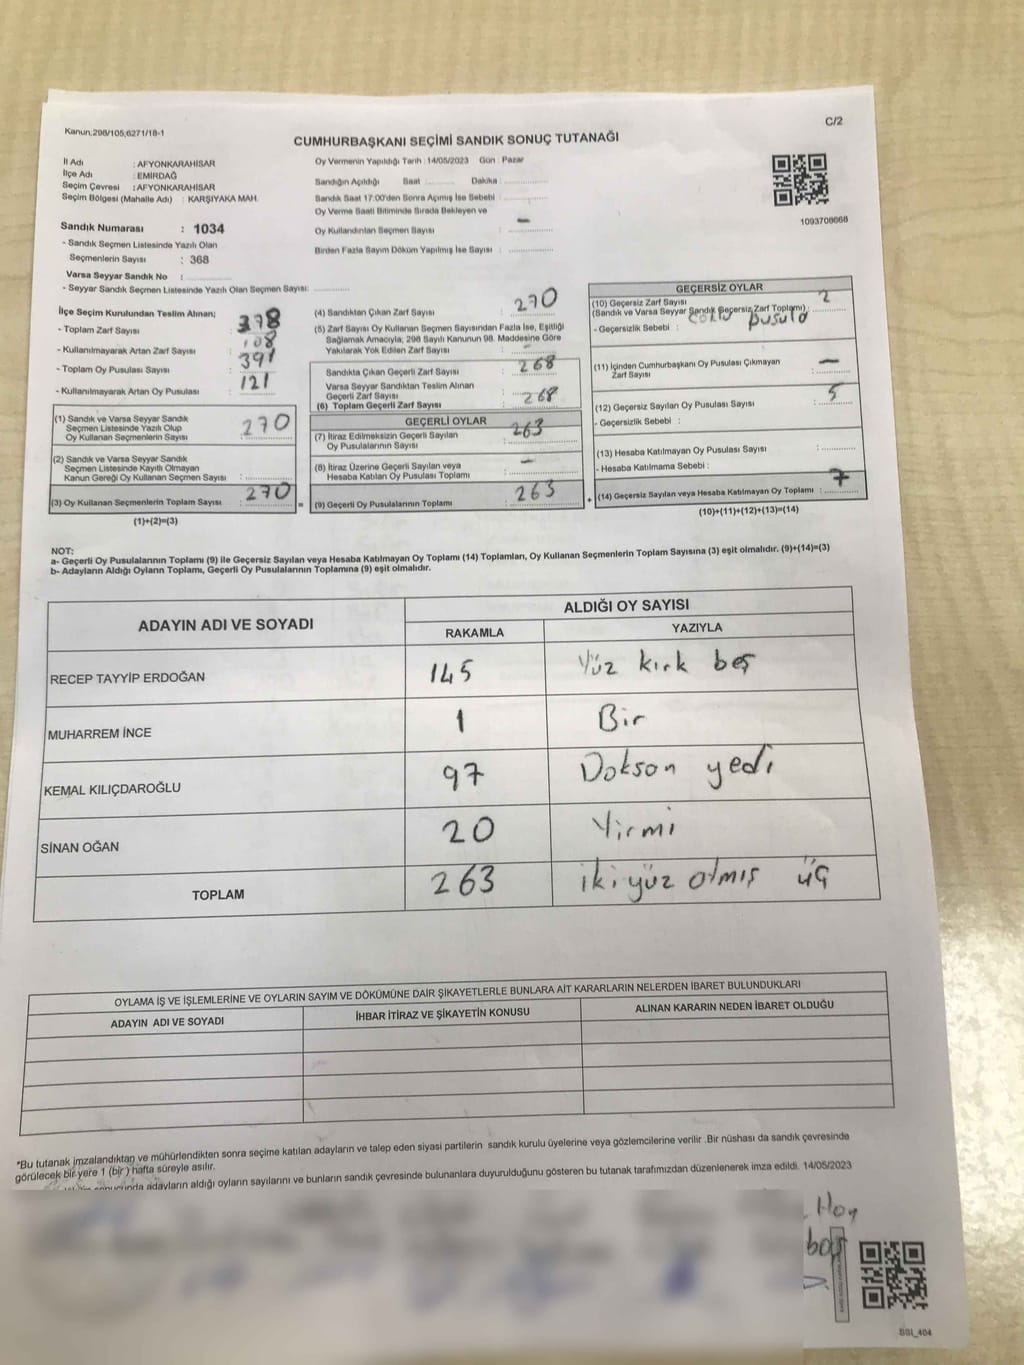 Kanun,298/105,6271/18-1
C/2
CUMHURBAŞKANI SEÇİMİ SANDIK SONUÇ TUTANAĞI
İl Adı : AFYONKARAHİSAR
İlçe Adı : EMİRDAĞ
Seçim Çevresi : AFYONKARAHİSAR
Seçim Bölgesi (Mahalle Adı) : KARŞIYAKA MAH.
Oy Vermenin Yapıldığı Tarih :14/05/2023 Gün : Pazar
Sandığın Açıldığı Saat ........... Dakika : ...........
Sandık Saat 17:00'den Sonra Açımış İse Sebebi : ...........
Oy Verme Saati Bitiminde Sırada Bekleyen ve
Oy Kullandırılan Seçmen Sayısı : –
Birden Fazla Sayım Döküm Yapılmış İse Sayısı : ...........
1093708668
Sandık Numarası : 1034
- Sandık Seçmen Listesinde Yazılı Olan
Seçmenlerin Sayısı : 368
Varsa Seyyar Sandık No : ...........
- Seyyar Sandık Seçmen Listesinde Yazılı Olan Seçmen Sayısı: ...........
İlçe Seçim Kurulundan Teslim Alınan;
- Toplam Zarf Sayısı : 378
- Kullanılmayarak Artan Zarf Sayısı : 108
- Toplam Oy Pusulası Sayısı : 391
- Kullanılmayarak Artan Oy Pusulası : 121
(1) Sandık ve Varsa Seyyar Sandık
Seçmen Listesinde Yazılı Olup
Oy Kullanan Seçmenlerin Sayısı : 270
(2) Sandık ve Varsa Seyyar Sandık
Seçmen Listesinde Kayıtlı Olmayan
Kanun Gereği Oy Kullanan Seçmen Sayısı : ...........
(3) Oy Kullanan Seçmenlerin Toplam Sayısı : 270
(1)+(2)=(3)
(4) Sandıktan Çıkan Zarf Sayısı : 270
(5) Zarf Sayısı Oy Kullanan Seçmen Sayısından Fazla İse, Eşitliği
Sağlamak Amacıyla; 298 Sayılı Kanunun 98. Maddesine Göre
Yakılarak Yok Edilen Zarf Sayısı : –
Sandıkta Çıkan Geçerli Zarf Sayısı : 268
Varsa Seyyar Sandıktan Teslim Alınan
Geçerli Zarf Sayısı :
(6) Toplam Geçerli Zarf Sayısı : 268
GEÇERLİ OYLAR
(7) İtiraz Edilmeksizin Geçerli Sayılan
Oy Pusulalarının Sayısı : 263
(8) İtiraz Üzerine Geçerli Sayılan veya
Hesaba Katılan Oy Pusulası Toplamı : –
(9) Geçerli Oy Pusulalarının Toplamı : 263
GEÇERSİZ OYLAR
(10) Geçersiz Zarf Sayısı
(Sandık ve Varsa Seyyar Sandık Geçersiz Zarf Toplamı) : 2
- Geçersizlik Sebebi : çoklu pusula
(11) İçinden Cumhurbaşkanı Oy Pusulası Çıkmayan
Zarf Sayısı : –
(12) Geçersiz Sayılan Oy Pusulası Sayısı : 5
- Geçersizlik Sebebi :
(13) Hesaba Katılmayan Oy Pusulası Sayısı : ...........
- Hesaba Katılmama Sebebi :
(14) Geçersiz Sayılan veya Hesaba Katılmayan Oy Toplamı : 7
(10)+(11)+(12)+(13)=(14)
NOT:
a- Geçerli Oy Pusulalarının Toplamı (9) ile Geçersiz Sayılan veya Hesaba Katılmayan Oy Toplamı (14) Toplamları, Oy Kullanan Seçmenlerin Toplam Sayısına (3) eşit olmalıdır. (9)+(14)=(3)
b- Adayların Aldığı Oyların Toplamı, Geçerli Oy Pusulalarının Toplamına (9) eşit olmalıdır.
ADAYIN ADI VE SOYADI
ALDIĞI OY SAYISI
RAKAMLA YAZIYLA
RECEP TAYYİP ERDOĞAN 145 Yüz kırk beş
MUHARREM İNCE 1 Bir
KEMAL KILIÇDAROĞLU 97 Dokson yedi
SİNAN OĞAN 20 Yirmi
TOPLAM 263 iki yüz otmış üç
OYLAMA İŞ VE İŞLEMLERİNE VE OYLARIN SAYIM VE DÖKÜMÜNE DAİR ŞİKAYETLERLE BUNLARA AİT KARARLARIN NELERDEN İBARET BULUNDUKLARI
ADAYIN ADI VE SOYADI İHBAR İTİRAZ VE ŞİKAYETİN KONUSU ALINAN KARARIN NEDEN İBARET OLDUĞU
*Bu tutanak imzalandıktan ve mühürlendikten sonra seçime katılan adayların ve talep eden siyasi partilerin sandık kurulu üyelerine veya gözlemcilerine verilir .Bir nüshası da sandık çevresinde
görülecek bir yere 1 (bir ) hafta süreyle asılır.
adayların aldığı oyların sayılarını ve bunların sandık çevresinde bulunanlara duyurulduğunu gösteren bu tutanak tarafımızdan düzenlenerek imza edildi. 14/05/2023